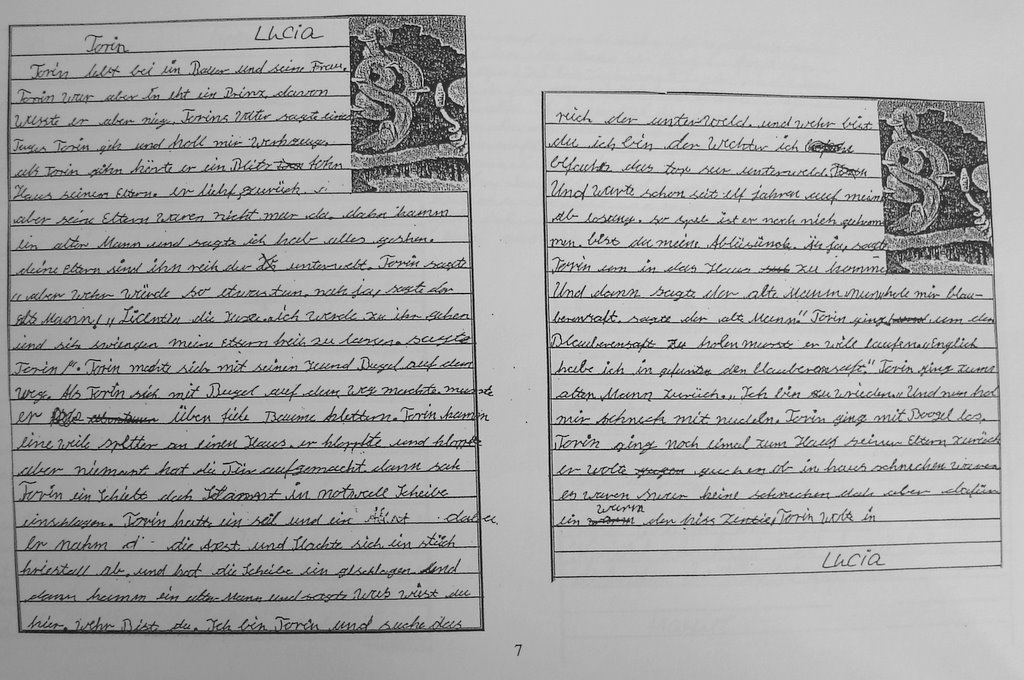 Torin
Lucia
Torin lebt bei ein Bauer und seine Frau.
Torin war aber in eht ein Prinz davon
wuste er aber nig. Torins Vater sagte eines
Tages Torin geh und holl mir Werkzeug
als Torin gihn hörte er ein Blitz
Haus seinen Eltern. er lieht zurück
aber seine Eltern waren nicht mar da. dahn kamm
ein alter Mann und sagte ich hab alles gesehen.
deine Eltern sind ihn reih der unterwelt. Torin sagte
"aber wehr würde so etwas tun. nah ja, sagte der
alte Mann! "Licentie die Hexe. ich werde zu ihr gehen
und sich zwingen meine Eltern freih zu lassen. sagte
Torin!". Torin machte sich mit seinen Hund Bugel auf dem
weg. Als Torin sich mit Bugel auf dem Weg machte muste
er über fiele Baume klettern. Torin kamm
eine weile spätter an einen Haus. er klopfte und klopfte
aber niemant hat die Tür aufgemacht. dann sah
Torin ein Schielt dah stammt in notwall Scheibe
einschlagen. Torin hatte ein seil und ein Äxst dabei.
Er nahm die Axst und Hachte sich ein stüch
kriestall ab. und hat die Scheibe ein geschlagen. Und
dann kamm ein alter Mann und sagte Was wiest du
hier. Wehr Bist du. Ich bin Torin und suche das
reich der unter Weld und wehr bist
du ich bin der Wechter ich
das tor zur unterweld
Und warte schon seit elf jahren auf meine
ab lösung. so speb ist er noch nich gekom
men. bist du meine Ablüsünck. Äh ja, sagte
Torin um in das Haus zu komme
Und dann sagte der alte Mann. nun hole mir blau-
berensaft. sagte der alte Mann." Torin ging um den
Blauberensaft zu holen muste er vill laufen. "Englich
habe ich in gefunten den blauberensaft." Torin ging zum
alten Mann zurück. "Ich bin zu vrieden." Und nun hol
mir schneck mit nudeln. Torin ging mit Boogel los.
Torin ging noch eimal zum Haus seinen Eltern zurück
er wolte guchen ob in haus schnechen waren
es waren zwar keine schnechen dah aber dafür
ein wurm den hiss Zentie, Torin wolte in
Lucia
7